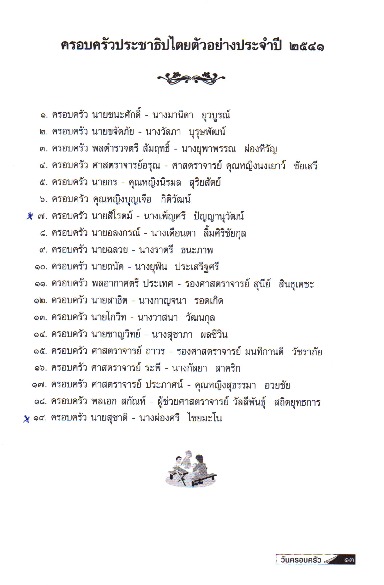 ครอบครัวประชาธิปไตยตัวอย่างประจำปี ๒๕๔๑
๑. ครอบครัว นายชนะศักดิ์ - นางมานิดา ยุวบูรณ์
๒. ครอบครัว นายขจัดภัย - นางวัลภา บุรุษพัฒน์
๓. ครอบครัว พลตำรวจตรี สัมฤทธิ์ - นางยุพาพรรณ ผ่องหิรัญ
๔. ครอบครัว ศาสตราจารย์อรุณ - ศาสตราจารย์ คุณหญิงนงเยาว์ ชัยเสรี
๕. ครอบครัว นายกร - คุณหญิงนิรมล สุริยสัตย์
๖. ครอบครัว คุณหญิงบุญเจือ กิติวัฒน์
๗. ครอบครัว นายสีโรตม์ - นางเพ็ญศรี ปัญญานุวัฒน์
๘. ครอบครัว นายอลงกรณ์ - นางเดือนตา ลิ้มศิริชัยกุล
๙. ครอบครัว นายฉลวย - นางราตรี ชนะภาพ
๑๐. ครอบครัว นายถนัด - นางยุพิน ประเสริฐศรี
๑๑. ครอบครัว พลอากาศตรี ประเทศ - รองศาสตราจารย์ สุนีย์ สินธุเดชะ
๑๒. ครอบครัว นายสาธิต - นางกาญจนา รอดเกิด
๑๓. ครอบครัว นายโกวิท - นางวาสนา วัฒนกุล
๑๔. ครอบครัว นายชาญวิทย์ - นางสุชาภา ผลชีวิน
๑๕. ครอบครัว ศาสตราจารย์ ถาวร - รองศาสตราจารย์ มนทิกานติ วัชราภัย
๑๖. ครอบครัว ศาสตราจารย์ ระพี - นางกัลยา สาคริก
๑๗. ครอบครัว ศาสตราจารย์ ประภาศน์ - คุณหญิงสุธรรมา อวยชัย
๑๘. ครอบครัว พลเอก สกัณห์ - ผู้ช่วยศาสตราจารย์ วัลลีพันธุ์ สถิตยุทธการ
๑๙. ครอบครัว นายสุชาติ - นางผ่องศรี ไชยมะโน
วันครอบครัว ๑๓